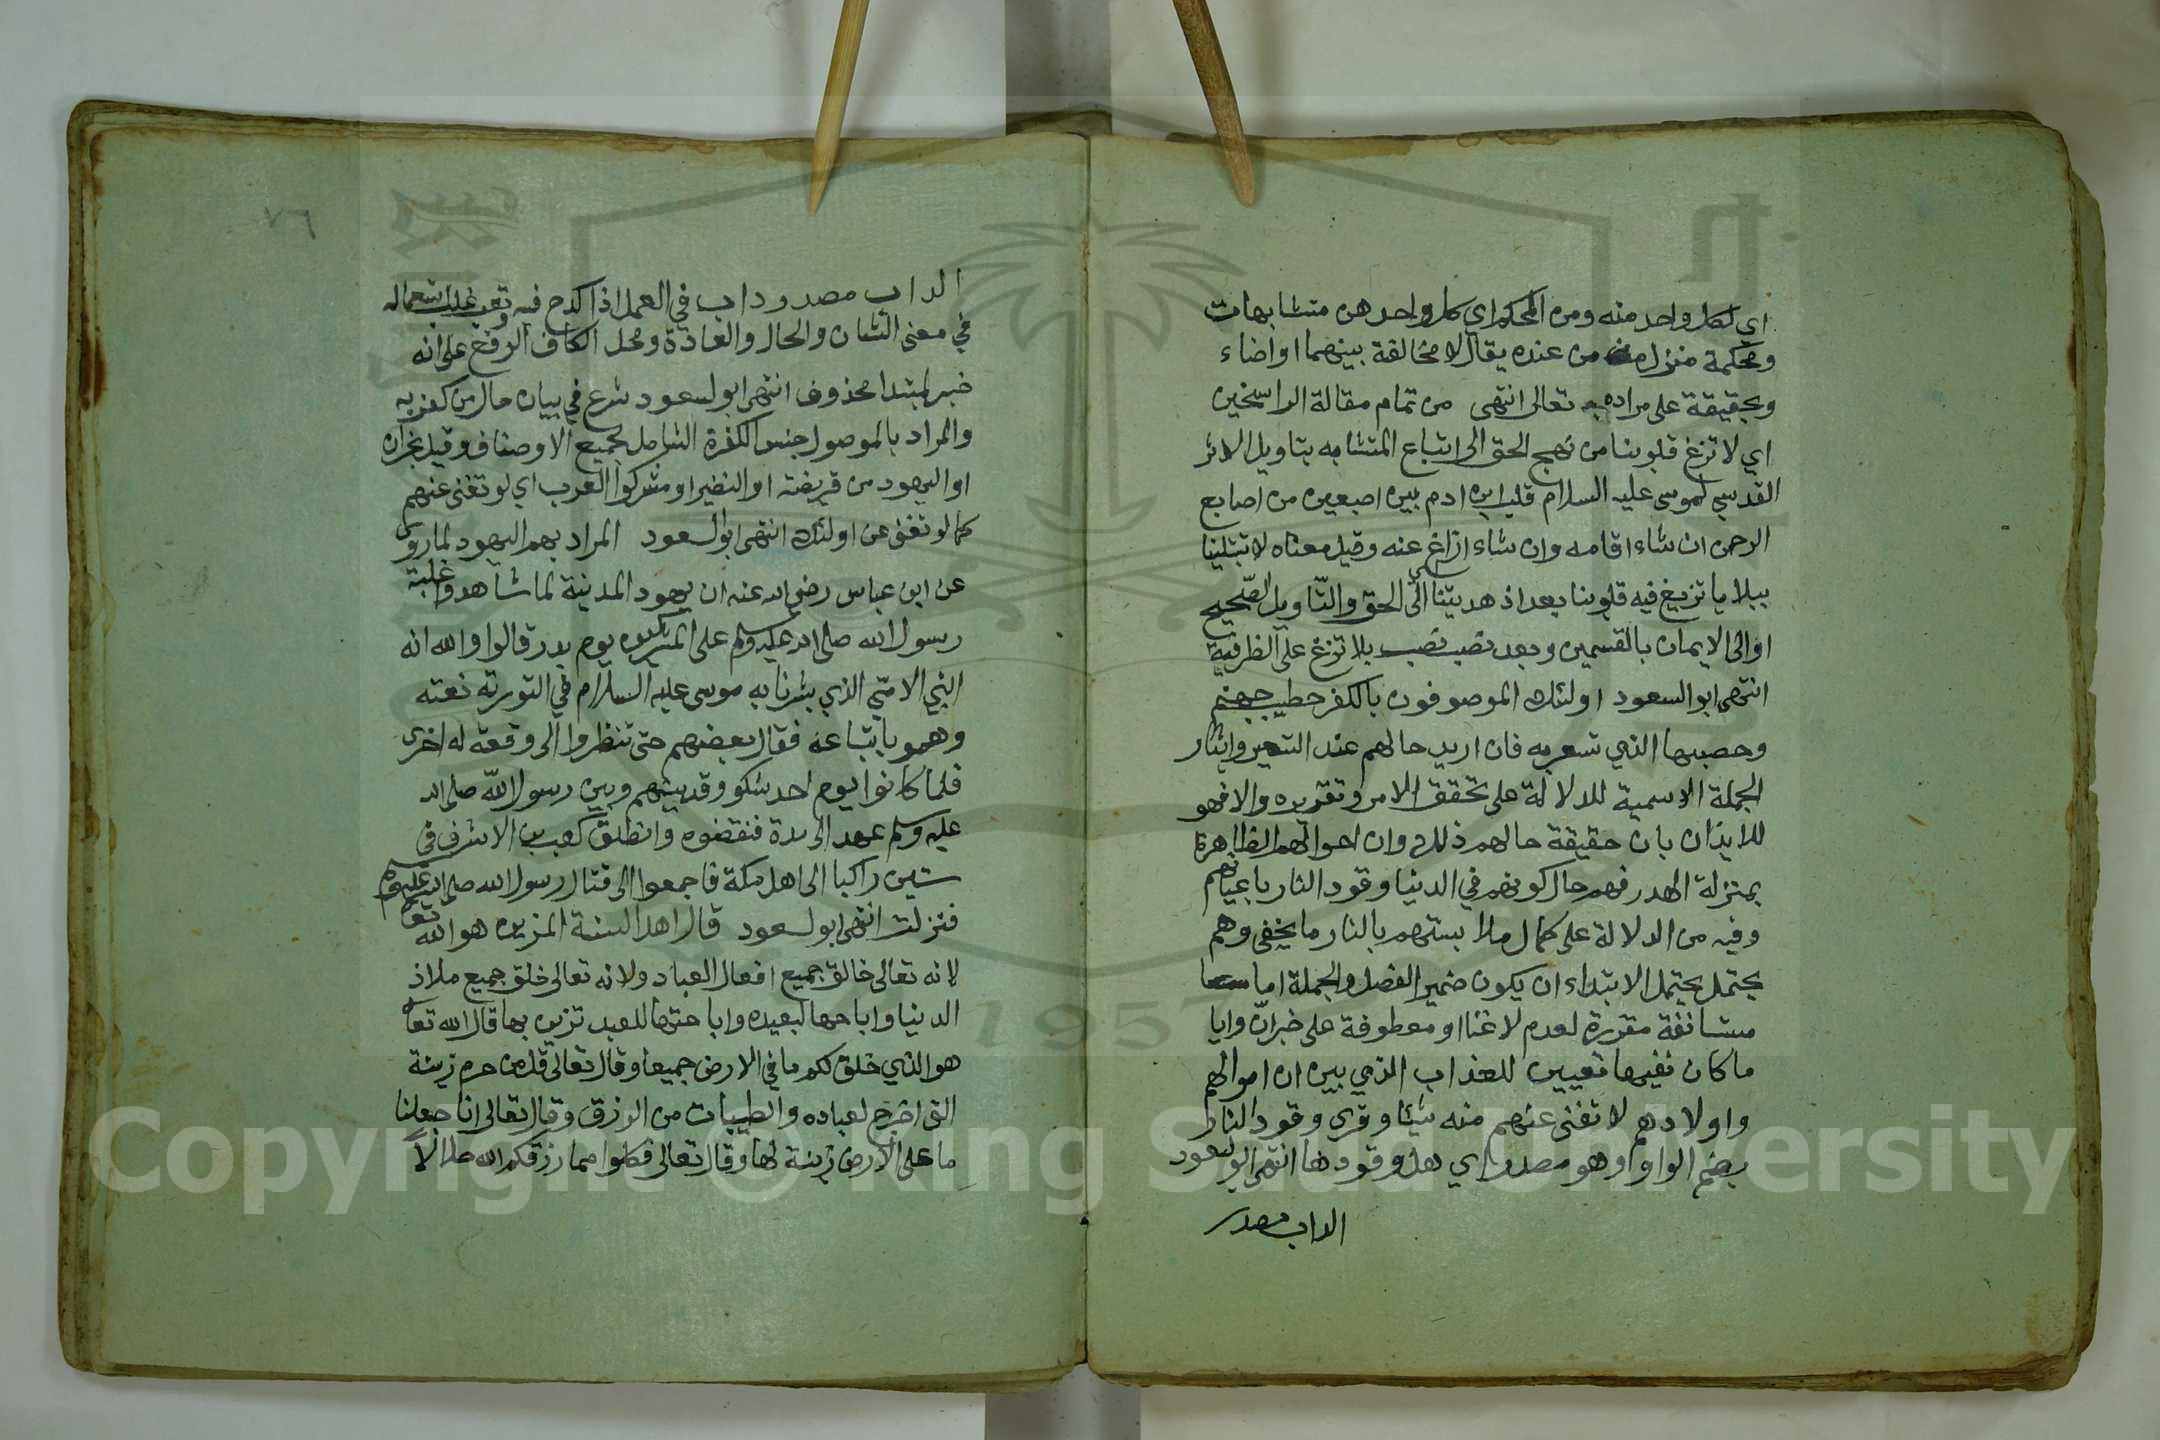 اي لكل واحد منه ومن المحكم اي كل واحد من متشابهات
ومحكمة منزل من عنده يقال لا مخالفة بينهما او اضاء
وبحقيقة على مراده به تعالى انتهى من تمام مقالة الراسخين
اي لا تزغ قلوبنا من نهج الحق الى اتباع المتشابه بتاويل الاثر
القدسي لموسى عليه السلام قلب ابن ادم بين اصبعين من اصابع
الرحمن ان شاء اقامه وان شاء ازاغ عنه وقيل معناه لا تبتلينا
ببلايا تزيغ فيه قلوبنا بعد اذ هديتنا الى الحق والتاويل الصحيح
او الى الايمان بالقسمين وبعد نصب نصب بلا تزغ على الظرفية
انتهى ابو السعود اولئك الموصوفون بالكفر حطب جهنم
وحصبها الذي تسعر به فان اريد حالهم عند التسعير وايثار
الجملة الاسمية للدلالة على تحقق الامر وتقريره والا فهو
للايذان بان حقيقة حالهم ذلك وان احوالهم الظاهرة
بمنزلة الهدر فهم حال كونهم في الدنيا وقود النار باعيانهم
وفيه من الدلالة على كمال ملابستهم بالنار ما يخفى وهم
يحتمل يحتمل الابتداء ان يكون ضمير الفصل والجملة اما
مستانفة مقررة لعدم لاغنا او معطوفة على خبر ان وايا
ما كان ففيها تعيين للعذاب الذي بين ان اموالهم
واولادهم لا تغنى عنهم منه شيئا وقرى وقود النار
بضم الواو وهو مصدر اي هل وقودها انتهى ابو لسعود
الداب مصدر
٧٦
الداب مصدر داب في العمل اذا كدح فيه وتعب غلب استعماله
في معنى الشان والحال والعادة ومحل الكاف الرفع على انه
خبر لمبتدا محذوف انتهى ابو لسعود شرع في بيان حال من كفر به
والمراد بالموصول جنس الكفرة الشامل لجميع الاوصناف وقيل نجران
او اليهود من قريضة او النضير او مشركوا العرب اي لو تغنى عنهم
كما لو تغنى عن اولئك انتهى ابو السعود المراد بهم اليهود لما روى
عن ابن عباس رضي الله عنه ان يهود المدينة لما شاهدوا غلبة
رسول الله صلى الله عليه وسلم على المشركين يوم بدر قالوا والله انه
النبي الامي الذي بشرنا به موسى عليه السلام في التورته نعته
وهمو باتباعه فقال بعضهم حتى تنظروا الى وقعة له اخرى
فلما كانوا يوم احد شكو وقد بينهم وبين رسول الله صلى الله
عليه وسلم عهد الى مدة فنقضوه وانطلق كعب بن الاشرف في
ستين راكبا الى اهل مكة فاجمعوا الى قتال رسول الله صلى الله عليه وسلم
فنزلت انتهى ابو لسعود قال اهل السنة المزين هو الله تعالى
لانه تعالى خالق جميع افعال العباد ولانه تعالى خلق جميع ملاذ
الدنيا واباحها لبعيده واباحتها للعبد تزين بها قال الله تعالى
هو الذي خلق لكم ما في الارض جميعا وقال تعالى قل من حرم زينة
التي اخرج لعباده والطيبات من الرزق وقال تعالى انا جعلنا
ما على الارض زينة لها وقال تعالى فكلوا مما رزقكم الله حلالاً
1957
Copyright © King Saud University